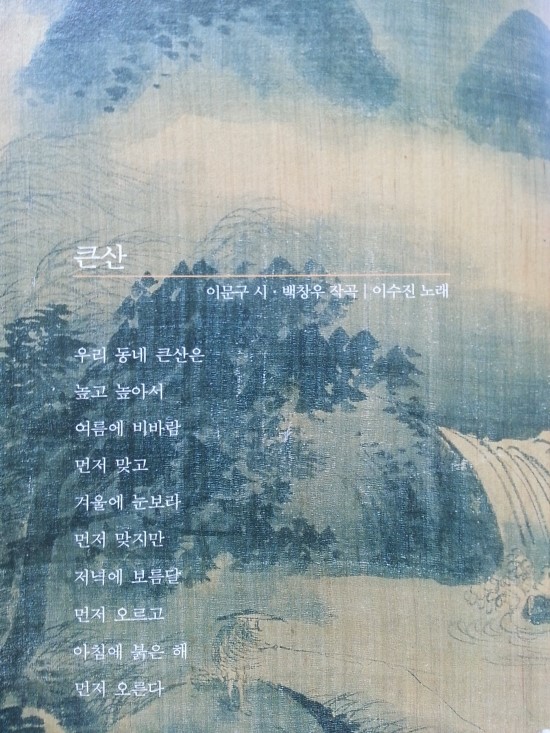 큰산
이문구 시 · 백창우 작곡 | 이수진 노래
우리 동네 큰산은
높고 높아서
여름에 비바람
먼저 맞고
겨울에 눈보라
먼저 맞지만
저녁에 보름달
먼저 오르고
아침에 붉은 해
먼저 오른다